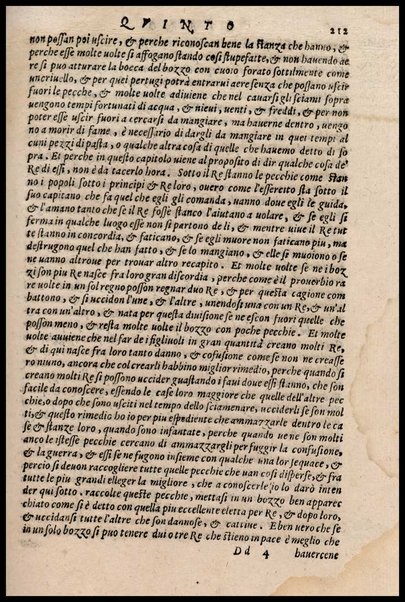 QVINTO 212
non possan poi uscire, & perche riconoscan bene la stanza che hanno, &
perche esse molte volte si affogano stando cosi stupefatte, & non hauendo ae
re si puo atturare la bocca del bozzo con cuoio forato sottilmente come
un criuello, & per quei pertugi potrà entrarui aere senza che possano uscir
fuori le pecche, & molte volte adiuiene che nel cauarsi gli sciami sopra
uengono tempi fortunati di acqua, & nieui, uenti, & freddi, & per non
poter esse uscir fuori a cercarsi da mangiare, ma hauerne dentro, uengo
no a morir di fame, è necessario di dargli da mangiare in quei tempi al
cuni pezzi di pasta, o qualche altra cosa di quelle che hauemo detto di so
pra. Et perche in questo capitolo uiene al proposito di dir qualche cosa de'
Re di essi, non è da tacerlo hora. Sotto il Re stanno le pecchie come stan
no i popoli sotto i principi & Re loro, ouero come l'essercito sta sotto il
suo capitano che fa quel che egli gli comanda, uanno doue egli le guida,
& l'amano tanto che se il Re fosse stanco l'aiutano a uolare, & se egli si
ferma in qualche luogo esse non si partono de li, & mentre uiue il Re tut
te stanno in concordia, & faticano, & se egli muore non faticano piu, ma
destrugono quel che han fatto, & se lo mangiano, & elle si muoiono o se
ne uanno altroue per trouar altro recapito. Et molte uolte se ne i boz
zi son piu Re nasce fra loro gran discordia, perche come è il prouerbio ra
re uolte in un sol regno posson regnar duo Re, & per questa cagione com
battono, & si uccidon l'une, & l'altre, unendosi una con un Re, & un'al
tra con un'altro, & nata per questa diuisione se ne escon fuori quelle che
posson meno, & resta molte uolte il bozzo con poche pecchie. Et molte
uolte auuiene che nel far de i figliuoli in gran quantità creano molti Re,
& di qui nasce fra loro tanto danno, & cofusione come se non ne creasse
ro niuno, ancora che col crearli habbino miglior rimedio, perche quando si
creano molti Re si possono uccider guastando i faui doue essi stanno, che son
facile da conoscere, essendo le case loro maggior che quelle dell'altre pec
chie, o dopo che sono usciti nel tempo dello sciamenare, ucciderli se son mol
ti, & questo rimedio ho io per piu espediente che ammazzarle dentro le ca
se & stanze loro, quando sono infantate, perche quando ue ne son molti
anco le istesse pecchie cercano di ammazzargli per fuggir la confusione,
& la guerra, & essi se ne fugono insieme con qualche una lor sequace, &
percio si deuon raccogliere tutte quelle pecchie che uan cosi disperse, & fra
tutte le piu grandi elleger la migliore, che a conoscerle io lo darò inten
der qui sotto. raccolte queste pecchie, mettasi in un bozzo ben apparec
chiato come si è detto con quella piu eccellente eletta per Re, & dopo loro,
& uccidansi tutte l'altre che son dannose, & cattiue. Eben uero che se
in un solo bozzo si puo tenere dui o tre Re che stieno in pace è meglio che
Dd 4 hauercene